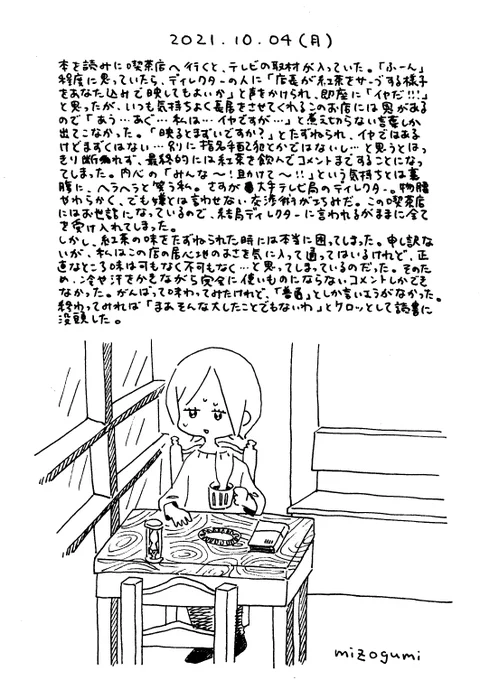 2021.10.04(月)
本を読みに喫茶店へ行くと、テレビの取材が入っていた。「ふーん」
程度に思っていたら、ディレクターの人に「店長が紅茶をサーブする様子
をあなた込みで映してもよいか」と声をかけられ、即座に「イヤだ!!!」
と思ったが、いつも気持ちよく長居をさせてくれるこのお店には恩がある
ので「あう…あぐ…私は…イヤですが…」と煮えきらない言葉しか
出てこなかった。「映るとまずいですか?」とたずねられ、イヤではある
けどまずくはない…別に指名手配犯とかではないし…と思うとはっ
きり断れず、最終的には紅茶を飲んでコメントまですることになっ
てしまった。内心の「みんな〜!助けて〜!!」という気持ちとは裏
腹に、ヘラヘラと笑う私。さすが大手テレビ局のディレクター。物腰
やわらかく、でも嫌とは言わせない交渉術が巧みだ。この喫茶店
にはお世話になっているので、結局ディレクターに言われるがままに全て
を受け入れてしまった。
しかし、紅茶の味をたずねられた時には本当に困ってしまった。申し訳な
いが、私はこの店の居心地のよさを気に入って通ってはいるけれど、正
直なところ味は可もなく不可もなく…と思ってしまっているのだった。そのた
め、冷や汗をかきながら完全に使いものにならないコメントしかでき
なかった。がんばって味わってみたけれど、「普通」としか言いようがなかった。
終わってみれば「まあそんな大したことでもないわ」とケロッとして読書に
没頭した。
mizogumi